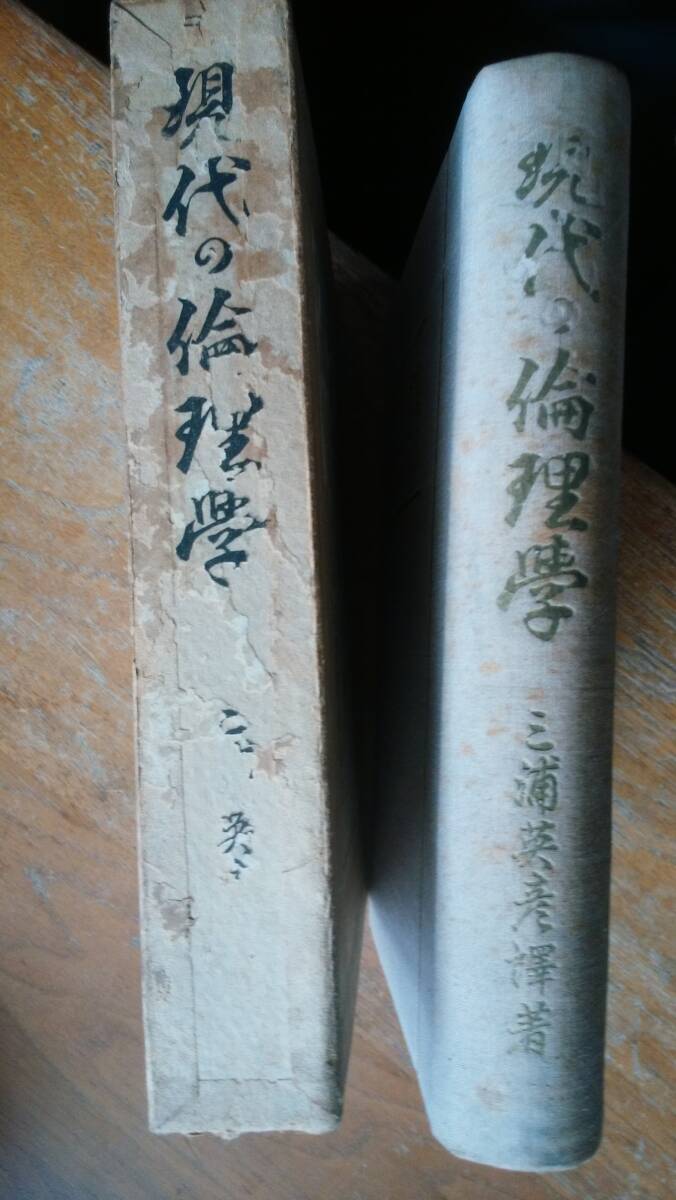 現代の倫理學
三 英
現代の倫理學
三浦英彦譯著